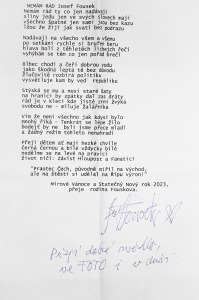 NEMÁM RÁD Josef Fousek
Nemám rád ty co jen nadávají
sliny jedu jen ve svých slovech mají
všechno špatné jen sami jsou bez kazu
lžou že žijí jak svatí bez podrazu
Nadávají na všechno všem a všemu
po setkání rychle si bruším benu
hlava bolí z těchhle lidských řečí
vyhýbám se těm co jen pořád brečí
Blbec chodí a čeří dobrou vodu
jako škodná leptá tě bez důvodu
Žlučovitě rozbírá politiku
vysvětluje kam by ved republiku
Stýská se mi a mosí staré šaty
na hranici by zpátky dal zas dráty
rád je v kleci kde jistě zrní zvyká
svoboda ne - miluje žalářníka
Vím že není všechno jak kdyby bylo
mnohý říká - Tenkrát se lépe žilo
bodejť by ne byli jsme přece mladí
a žádný režim tohleto nenahradí
Přeji dětem ať mají hezké chvíle
černá černou a bílé vždycky bílé
nedělme se na levé na pravici
život ničí: závist Hloupost a Fanatici
"Praotec Čech, původně mířil na východ,
ale na štěstí si udělal na Řípu výron!"
Mírové Vánoce a Statečný Nový rok 2023,
přeje rodina Fouskova.